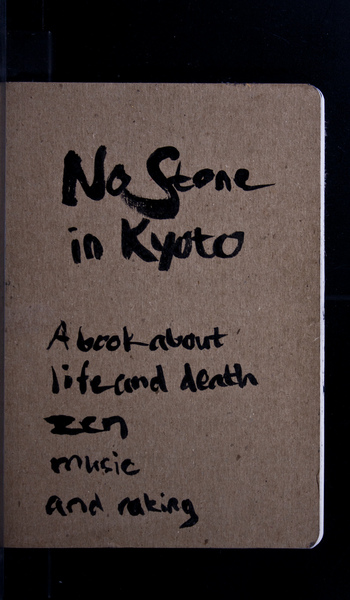 No Stone
in Kyoto
A book about
life and death
zen
music
and raking